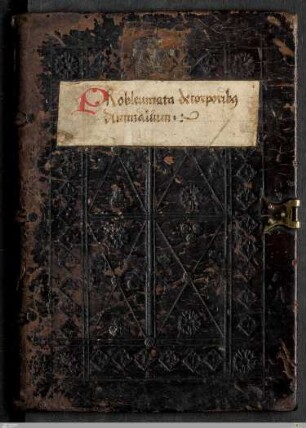 Probleumata de corporibꝫ
diuinalium